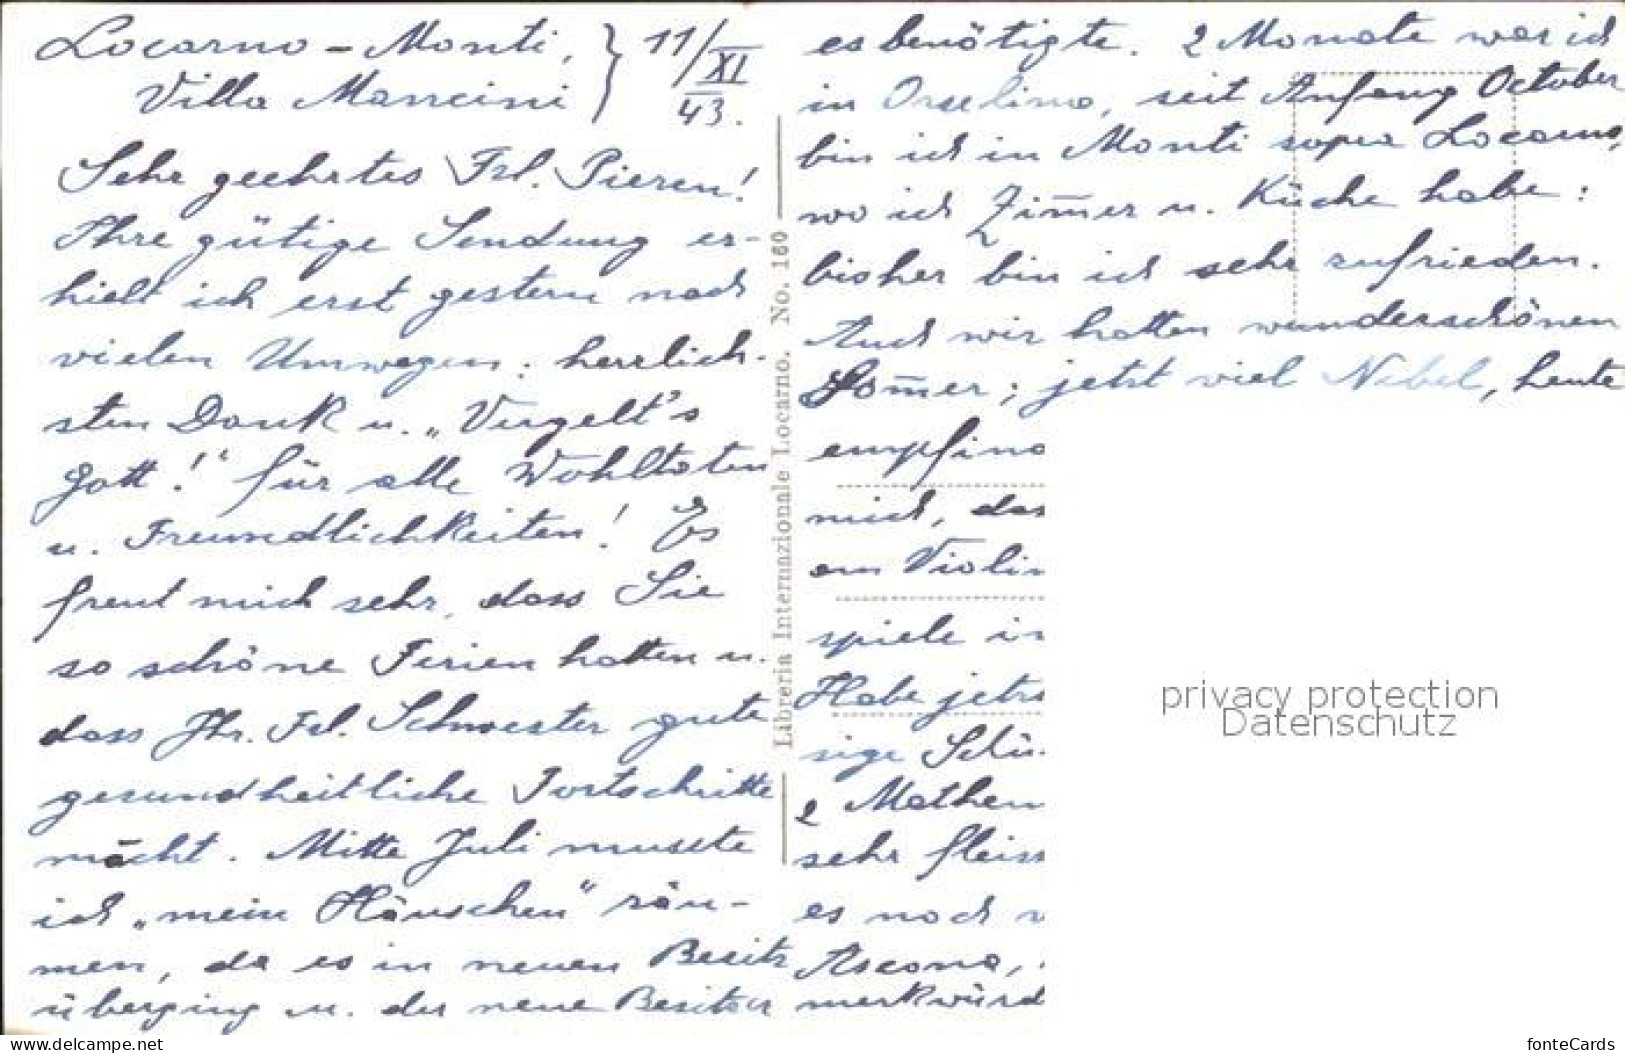 Locarno – Monti,
Villa Mancini
11/XI
43.
Sehr geehrtes Frl. Pieren!
Ihre gütige Sendung er-
hielt ich erst gestern nach
vielen Umwegen: herzlich-
sten Dank u. „Vergelt's
Gott!“ für alle Wohltaten
u. Freundlichkeiten! Es
freut mich sehr, dass Sie
so schöne Ferien hatten u.
dass Ihr. Frl. Schwester gute
gesundheitliche Fortschritte
macht. Mitte Juli musste
ich „mein Häuschen“ räu-
men, da es in neuen Besitz
überging u. der neue Besitzer
Libreria Internazionale Locarno. No. 160
es benötigte. 2 Monate war ich
in Orselina, seit Anfang October
bin ich in Monti sopra Locarno,
wo ich Zim̄er u. Küche habe:
bisher bin ich sehr zufrieden.
Auch wir hatten wunderschönen
Som̄er; jetzt viel Nebel, heute
empfind
mich, das
am Violin
spiele in
Habe jetz
sige Schü
2 Mathem
sehr fleiss
es noch
Ascona,
merkwürd
privacy protection
Datenschutz
www.delcampe.net
fonteCards